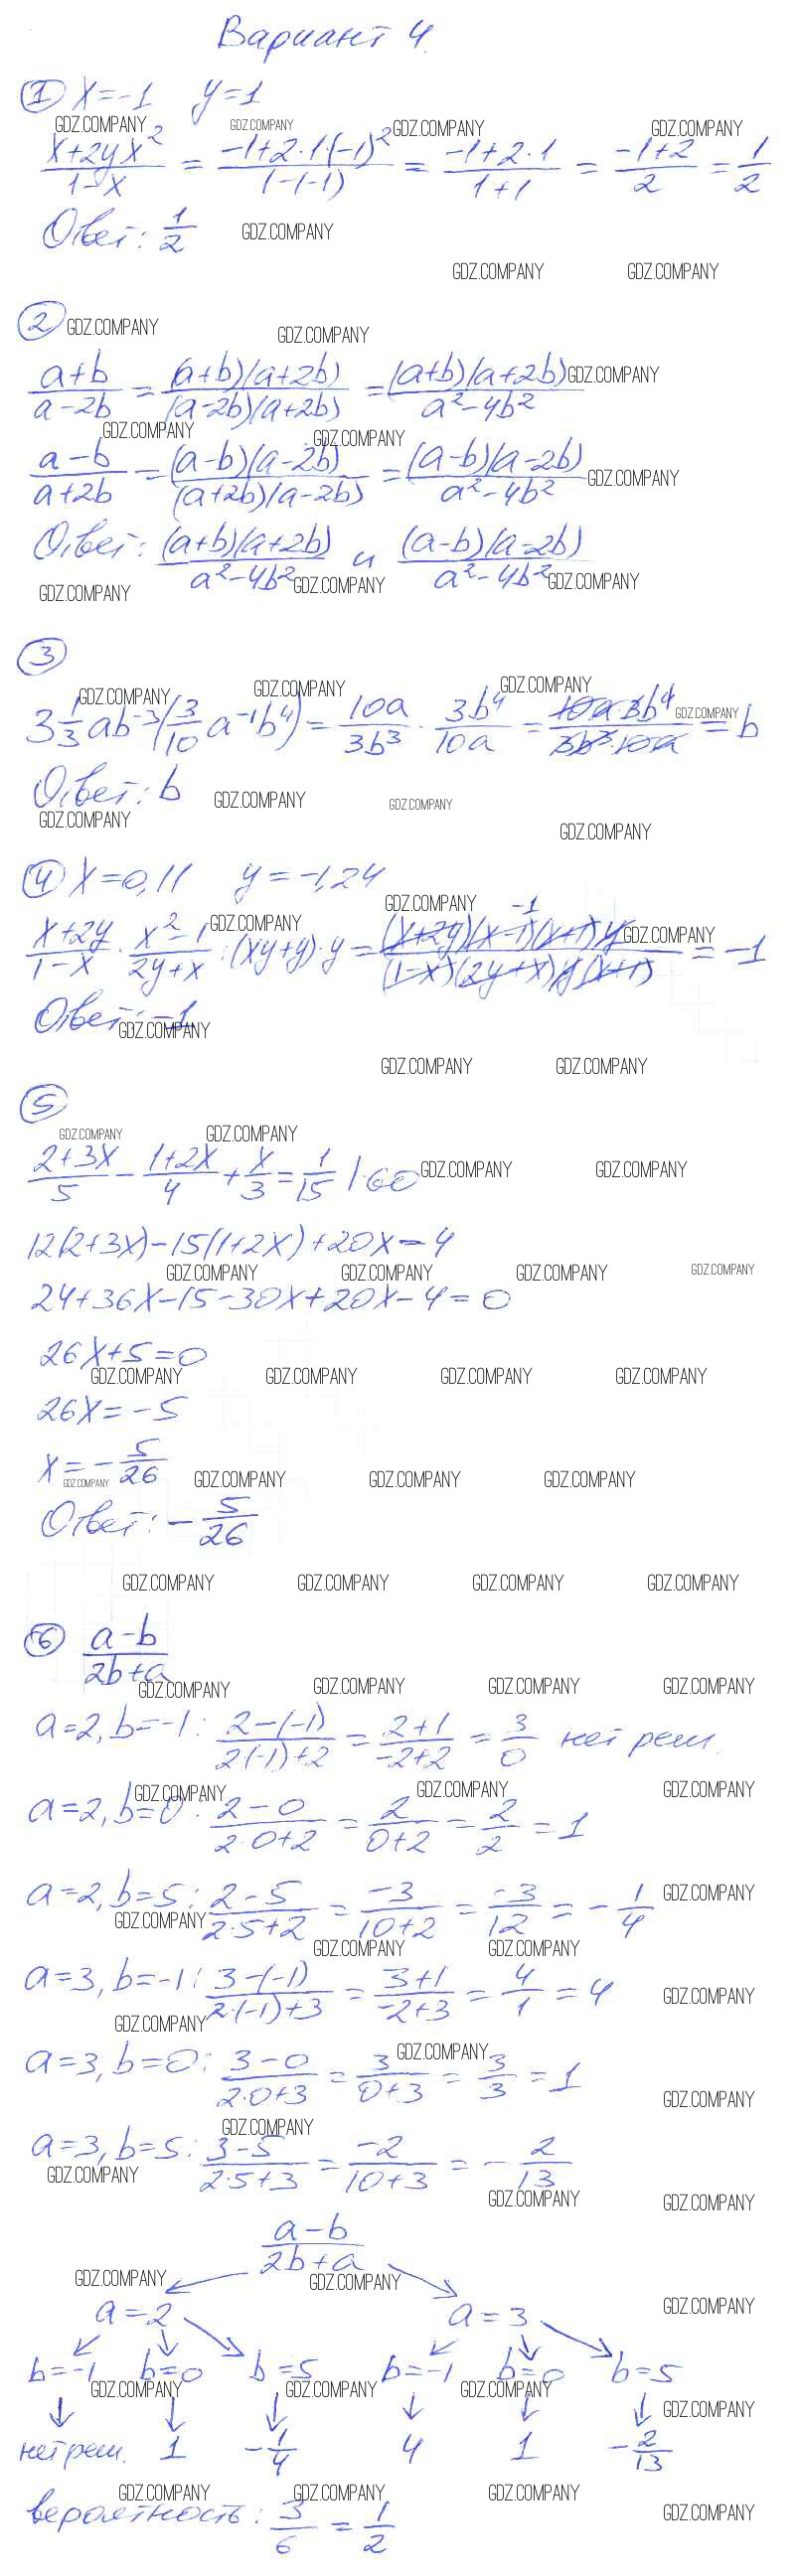 Вариант 4.
① x=-1 y=1
(x+2yx²)/(1-x) = (-1+2·1·(-1)²)/(1-(-1)) = (-1+2·1)/(1+1) = (-1+2)/2 = 1/2
Ответ: 1/2
②
(a+b)/(a-2b) = ((a+b)(a+2b))/((a-2b)(a+2b)) = ((a+b)(a+2b))/(a²-4b²)
(a-b)/(a+2b) = ((a-b)(a-2b))/((a+2b)(a-2b)) = ((a-b)(a-2b))/(a²-4b²)
Ответ: ((a+b)(a+2b))/(a²-4b²) и ((a-b)(a-2b))/(a²-4b²)
③
3 1/3 ab⁻³(3/10 a⁻¹b⁴) = 10a/3b³ · 3b⁴/10a = (10a·3b⁴)/(3b³·10a) = b
Ответ: b
④ x=0,11 y=-1,24
(x+2y)/(1-x) · (x²-1)/(2y+x) : (xy+y)·y = ((x+2y)(x-1)(x+1)y)/((1-x)(2y+x)y(x+1)) = -1
Ответ: -1
⑤
(2+3x)/5 - (1+2x)/4 + x/3 = 1/15 |·60
12(2+3x)-15(1+2x)+20x=4
24+36x-15-30x+20x-4=0
26x+5=0
26x=-5
x=-5/26
Ответ: -5/26
⑥ (a-b)/(2b+a)
a=2, b=-1: (2-(-1))/(2·(-1)+2) = (2+1)/(-2+2) = 3/0 нет реш.
a=2, b=0: (2-0)/(2·0+2) = 2/(0+2) = 2/2 = 1
a=2, b=5: (2-5)/(2·5+2) = -3/(10+2) = -3/12 = -1/4
a=3, b=-1: (3-(-1))/(2·(-1)+3) = (3+1)/(-2+3) = 4/1 = 4
a=3, b=0: (3-0)/(2·0+3) = 3/(0+3) = 3/3 = 1
a=3, b=5: (3-5)/(2·5+3) = -2/(10+3) = -2/13
(a-b)/(2b+a)
a=2 a=3
b=-1 b=0 b=5 b=-1 b=0 b=5
нет реш. 1 -1/4 4 1 -2/13
вероятность: 3/6 = 1/2
GDZ.COMPANY